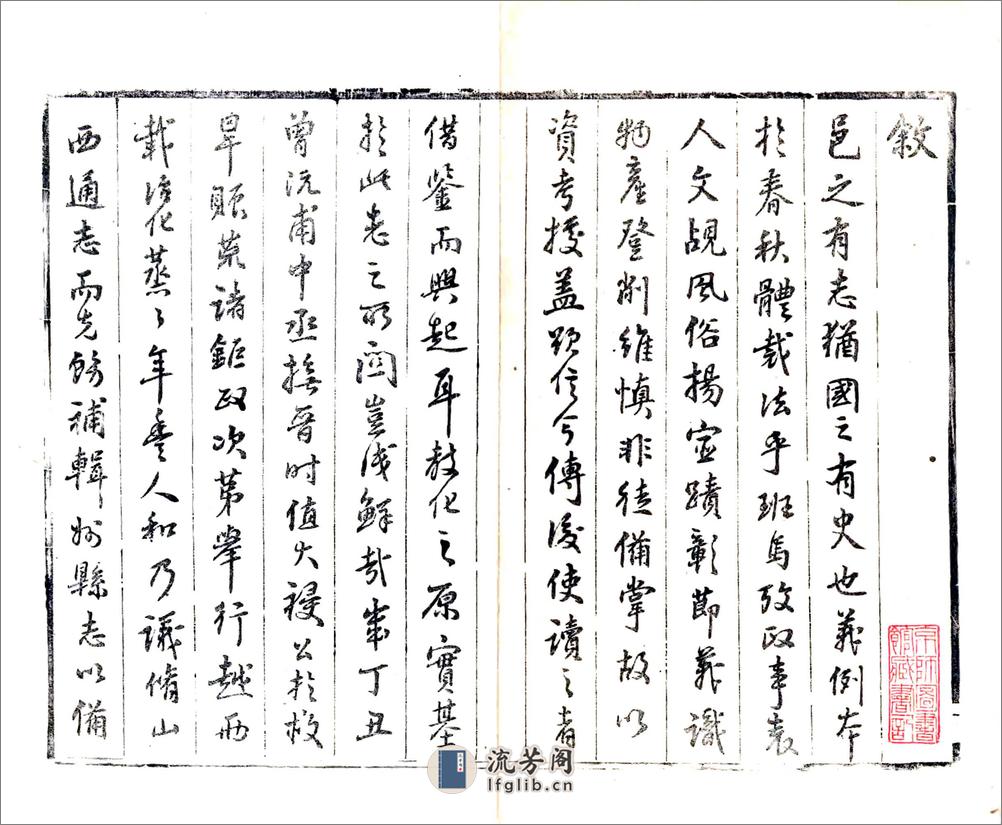 敘
邑之有志猶國之有史也義例本
於春秋體裁法乎班馬攷政事表
人文覘風俗揚宦蹟彰節義識
物產登削維慎非徒備掌故以
資考據蓋欲信今傳後使讀之者
借鑒而興起耳教化之原實基
於此志之所關豈淺鮮哉歲丁丑
曾沅甫中丞撫晉時值大祲公於救
旱賑荒諸鉅政次第舉行越兩
載治化蒸々年豐人和乃議脩山
西通志而先飭補輯州縣志以備
京師圖書
館藏書記
流芳阁
lfglib.cn